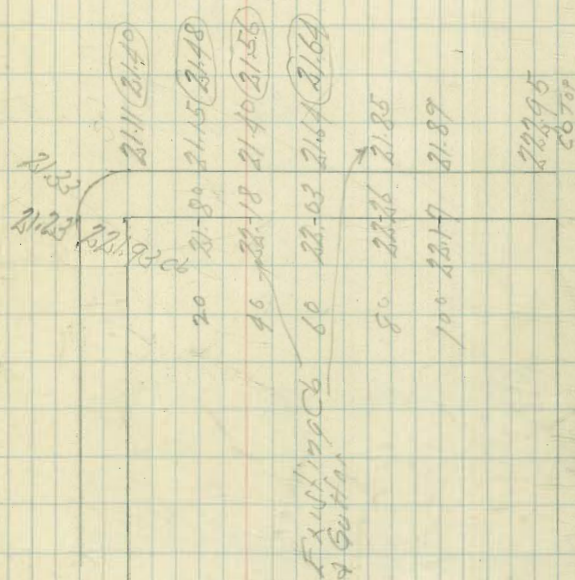 21.33
21.23
221.93 Cb
21.11 21.40
20 21.80 21.15 21.48
40 22.18 21.40 21.56
60 22.03 21.64 21.64
80 22.26 21.85
100 22.17 21.89
222.95
Cb Top
Existing Cb
& Gutter